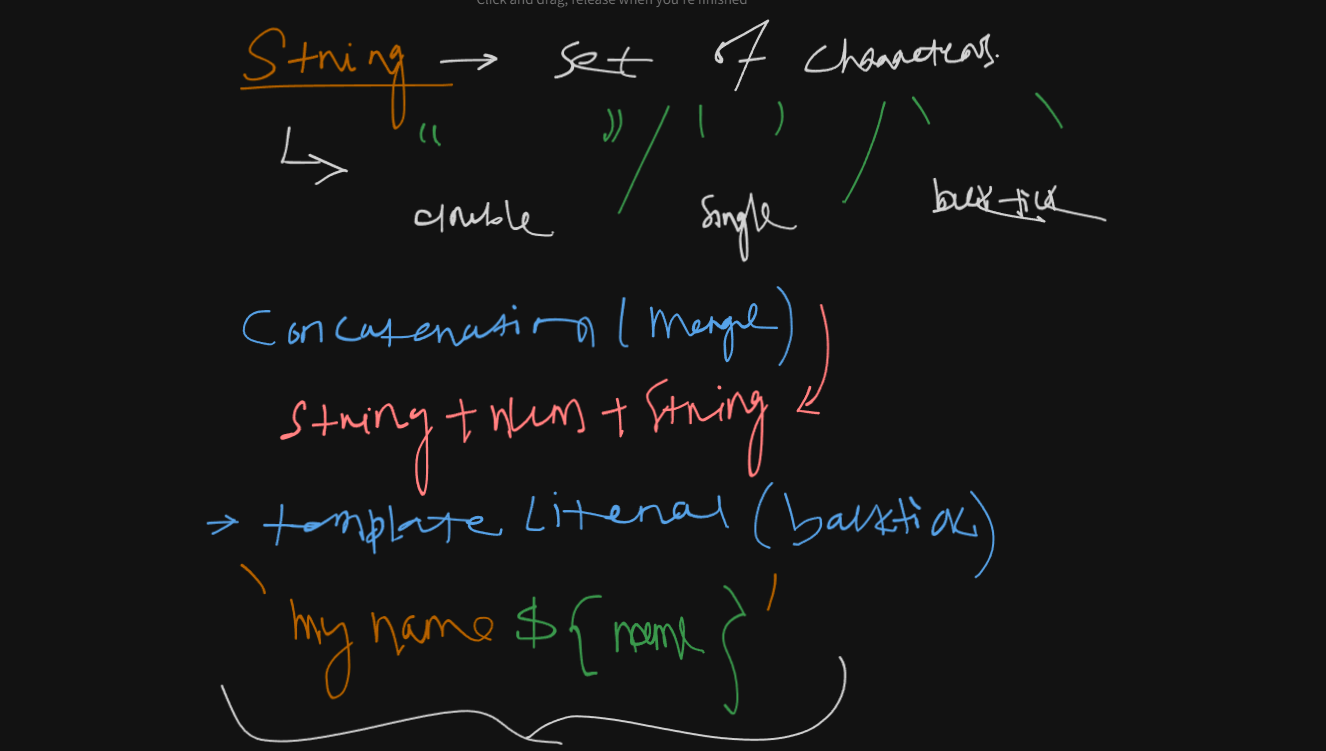 Click and drag, release when you're finished
String → set of characters.
" " / ' ' / ` `
double single backtick
Concatenation (Merge)
String + Num + String
→ template Literal (backtick)
` my name ${name} `